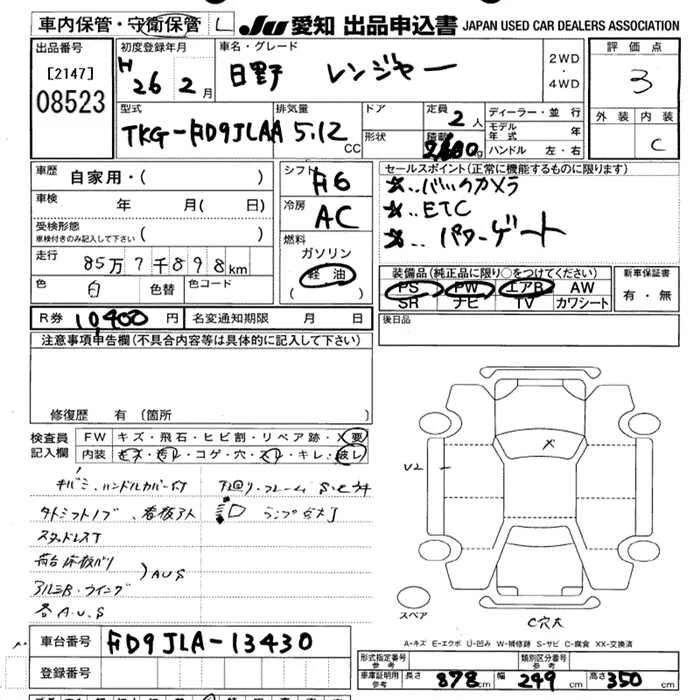 車内保管・守衛保管 L JU 愛知 出品申込書 JAPAN USED CAR DEALERS ASSOCIATION
出品番号 [2147] 08523
初度登録年月 H 26 2月
車名・グレード 日野 レンジャー
2WD・4WD
評価点 3
外装 内装 C
型式 TKG-FD9JLAA
排気量 5.12 CC
ドア
形状
定員 2人
積載
ディーラー・並行
モデル年式 年
ハンドル 左・右
車歴 自家用・( )
車検 年 月( 日)
受検形態
車検付きのみ記入して下さい ( )
走行 85万7千898km
色 白 色替 色コード
シフト F6
冷房 AC
燃料 ガソリン
軽油
( )
セールスポイント(正常に機能するものに限ります)
☆..バックカメラ
☆..ETC
☆.. パワーゲート
装備品(純正品に限り○をつけてください)
PS PW エアB AW
SR ナビ TV カワシート
新車保証書
有・無
R券 10,400 円 名変通知期限 月 日
後日品
注意事項申告欄(不具合内容等は具体的に記入して下さい)
修復歴 有(箇所 )
検査員記入欄 FW キズ・飛石・ヒビ割・リペア跡・X要
内装 キズ・汚レ・コゲ・穴・スレ・キレ・破レ
キバミ、ハンドルカバー付
下回り・フレーム S・C
スタッドレスT
荷台床板バリ
アルミB・ウイング
AUS
各A.U.S
U2
X
スペア
C穴大
A-キズ E-エクボ U-凹み W-補修跡 S-サビ C-腐食 XX-交換済
車台番号 FD9JLA-13430
登録番号
形式指定番号 参考
類別区分番号 参考
車庫証明用 参考 長さ 878cm 幅 249cm 高さ 350cm